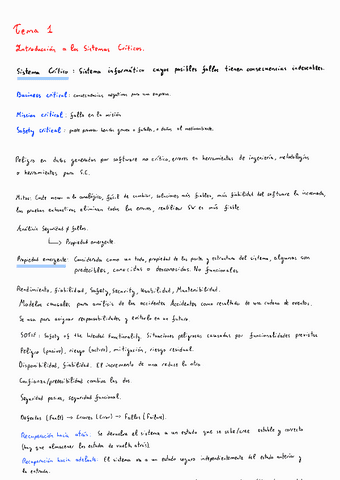 Tema 1
Introducción a los Sistemas Críticos.
Sistema Crítico: Sistema informático cuyos posibles fallos tienen consecuencias indeseables.
Business critical: consecuencias negativas para una empresa.
Mission critical: falla en la misión
Safety critical: puede provocar heridas graves o fatales, o daños al medioambiente.
Peligro en datos generados por software no crítico, errores en herramientas de ingeniería, metodologías
o herramientas para S.C.
Mitos: Coste menor a lo analógico, fácil de cambiar, soluciones más fiables, más fiabilidad del software lo incrementa,
las pruebas exhaustivas eliminan todos los errores, reutilizar SW es más fiable
Análisis Seguridad ≠ fallos.
↳ Propiedad emergente.
Propiedad emergente: Considerado como un todo, propiedad de las partes y estructura del sistema, algunas son
predecibles, conocidas o desconocidas. No funcionales
Rendimiento, fiabilidad, Safety, Security, Usabilidad, Mantenibilidad.
Modelos causales para análisis de los accidentes Accidentes como resultado de una cadena de eventos.
Se usa para asignar responsabilidades y evitarlo en un futuro
SOTIF: Safety of the Intended Functionality. Situaciones peligrosas causadas por funcionalidades previstas
Peligro (pasivo), riesgo (activo), mitigación, riesgo residual.
Disponibilidad, fiabilidad. El incremento de una reduce la otra
Confianza/predecibilidad combina las dos
Seguridad pasiva, seguridad funcional.
Defectos (Fault) → Errores (Error) → Fallos (Failure).
Recuperación hacia atrás: Se devuelve el sistema a un estado que se sabe/cree estable y correcto
(hay que almacenar los estados de vuelta atrás).
Recuperación hacia adelante: El sistema va a un estado seguro independientemente del estado anterior y
la entrada.